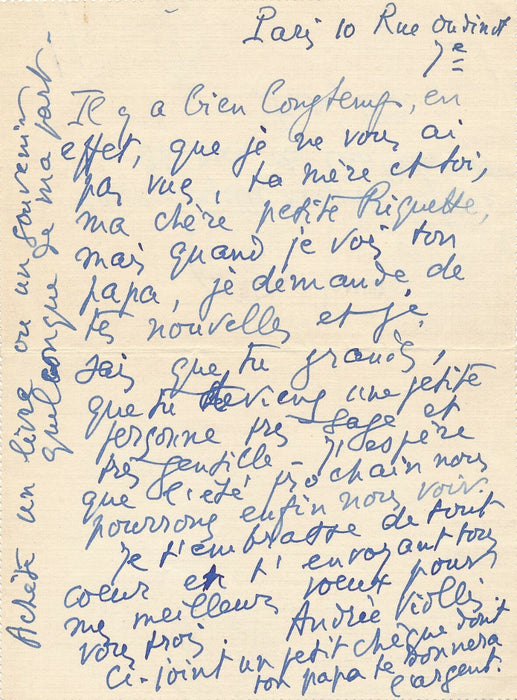 Paris 10 Rue Oudinot
7e
Il y a bien longtemps, en
effet, que je ne vous ai
pas vues, ta mère et toi,
ma chère petite Riquette,
mais quand je vois ton
papa, je demande de
tes nouvelles et je
sais que tu grandis,
que tu deviens une petite
personne très sage et
très gentille. J'espère
que l'été prochain nous
pourrons enfin nous voir.
Je t'embrasse de tout
coeur en t'envoyant tous
mes meilleurs voeux pour
vous trois. Andrée Viollis
Ci-joint un petit chèque dont
ton papa te donnera
l'argent.
Achète un livre ou un souvenir
quelconque de ma part.